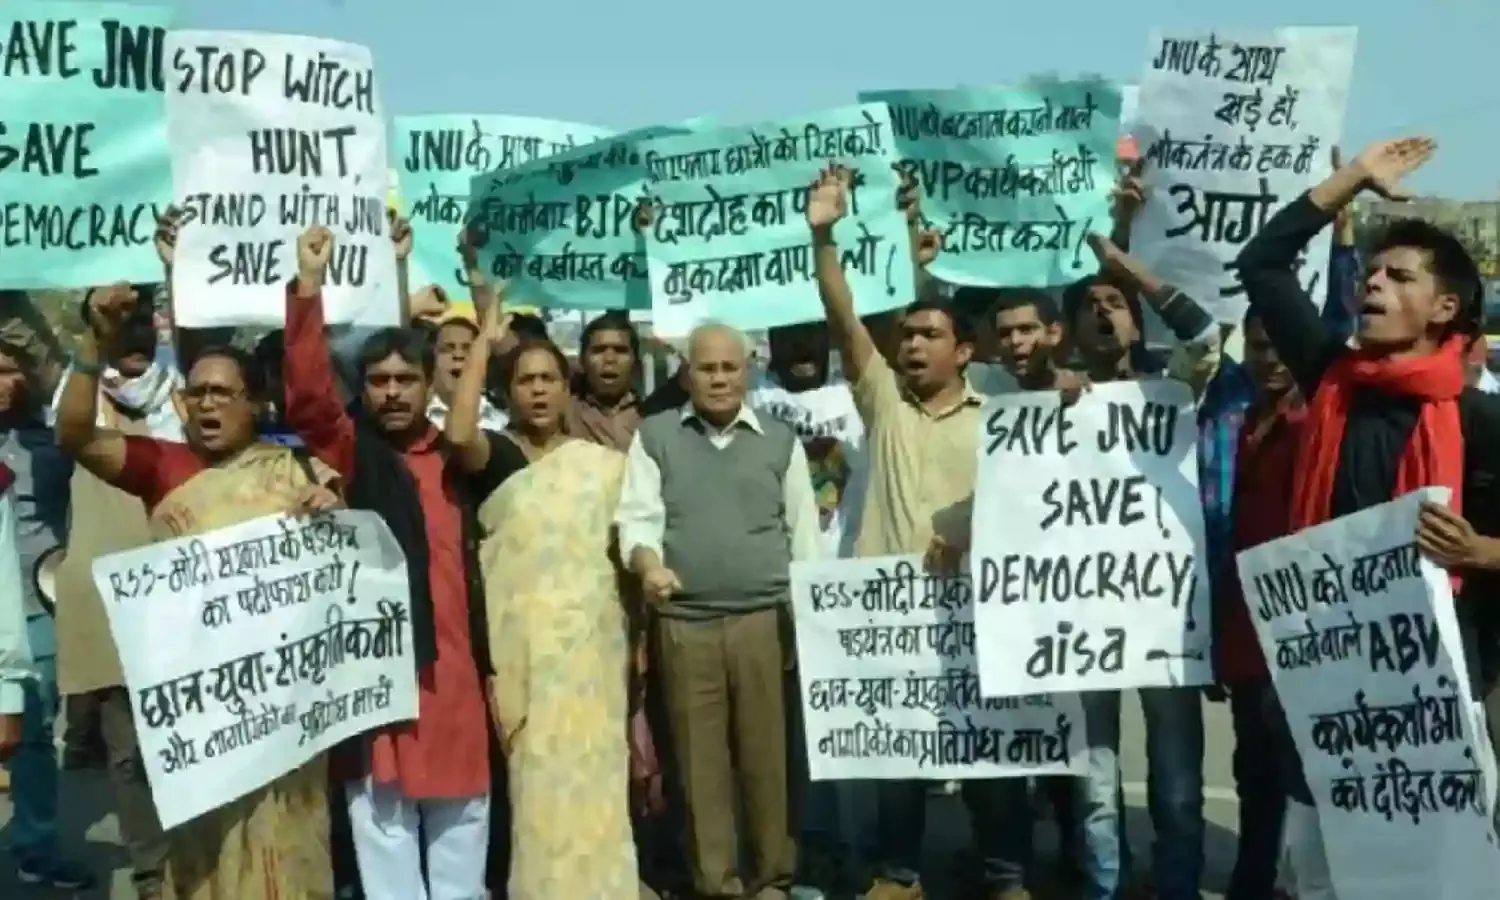 AVE JNU
SAVE
DEMOCRACY
STOP WITCH
HUNT,
STAND WITH JNU
SAVE JNU
JNU के साथ
लोक
जिम्मेवार BJP
को बर्खास्त कर
गिरफ्तार छात्रों को रिहा करो,
देशद्रोह का
मुकदमा वापस लो !
JNU को बदनाम करने वाले
ABVP कार्यकर्ताओं
को दंडित करो !
JNU के साथ
खड़े हों,
लोकतंत्र के हक में
आगे
RSS-मोदी सरकार के षड्यंत्र
का पर्दाफाश करो !
छात्र-युवा-संस्कृतिकर्मी
और नागरिकों का प्रतिरोध मार्च
RSS-मोदी सरक
षड्यंत्र का पर्दाफ
छात्र-युवा-संस्कृतिक
नागरिकों का प्रतिरोध मार्च
SAVE JNU
SAVE!
DEMOCRACY!
aisa
JNU को बदनाम
करनेवाले ABV
कार्यकर्ताओं
को दंडित करो